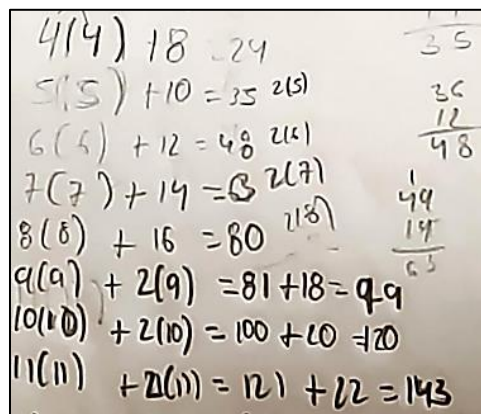 4(4) + 8 = 24
5(5) + 10 = 35 2(5)
6(6) + 12 = 48 2(6)
7(7) + 14 = 63 2(7)
8(8) + 16 = 80 2(8)
9(9) + 2(9) = 81 + 18 = 99
10(10) + 2(10) = 100 + 20 = 120
11(11) + 2(11) = 121 + 22 = 143
35
36
12
48
1
49
14
63